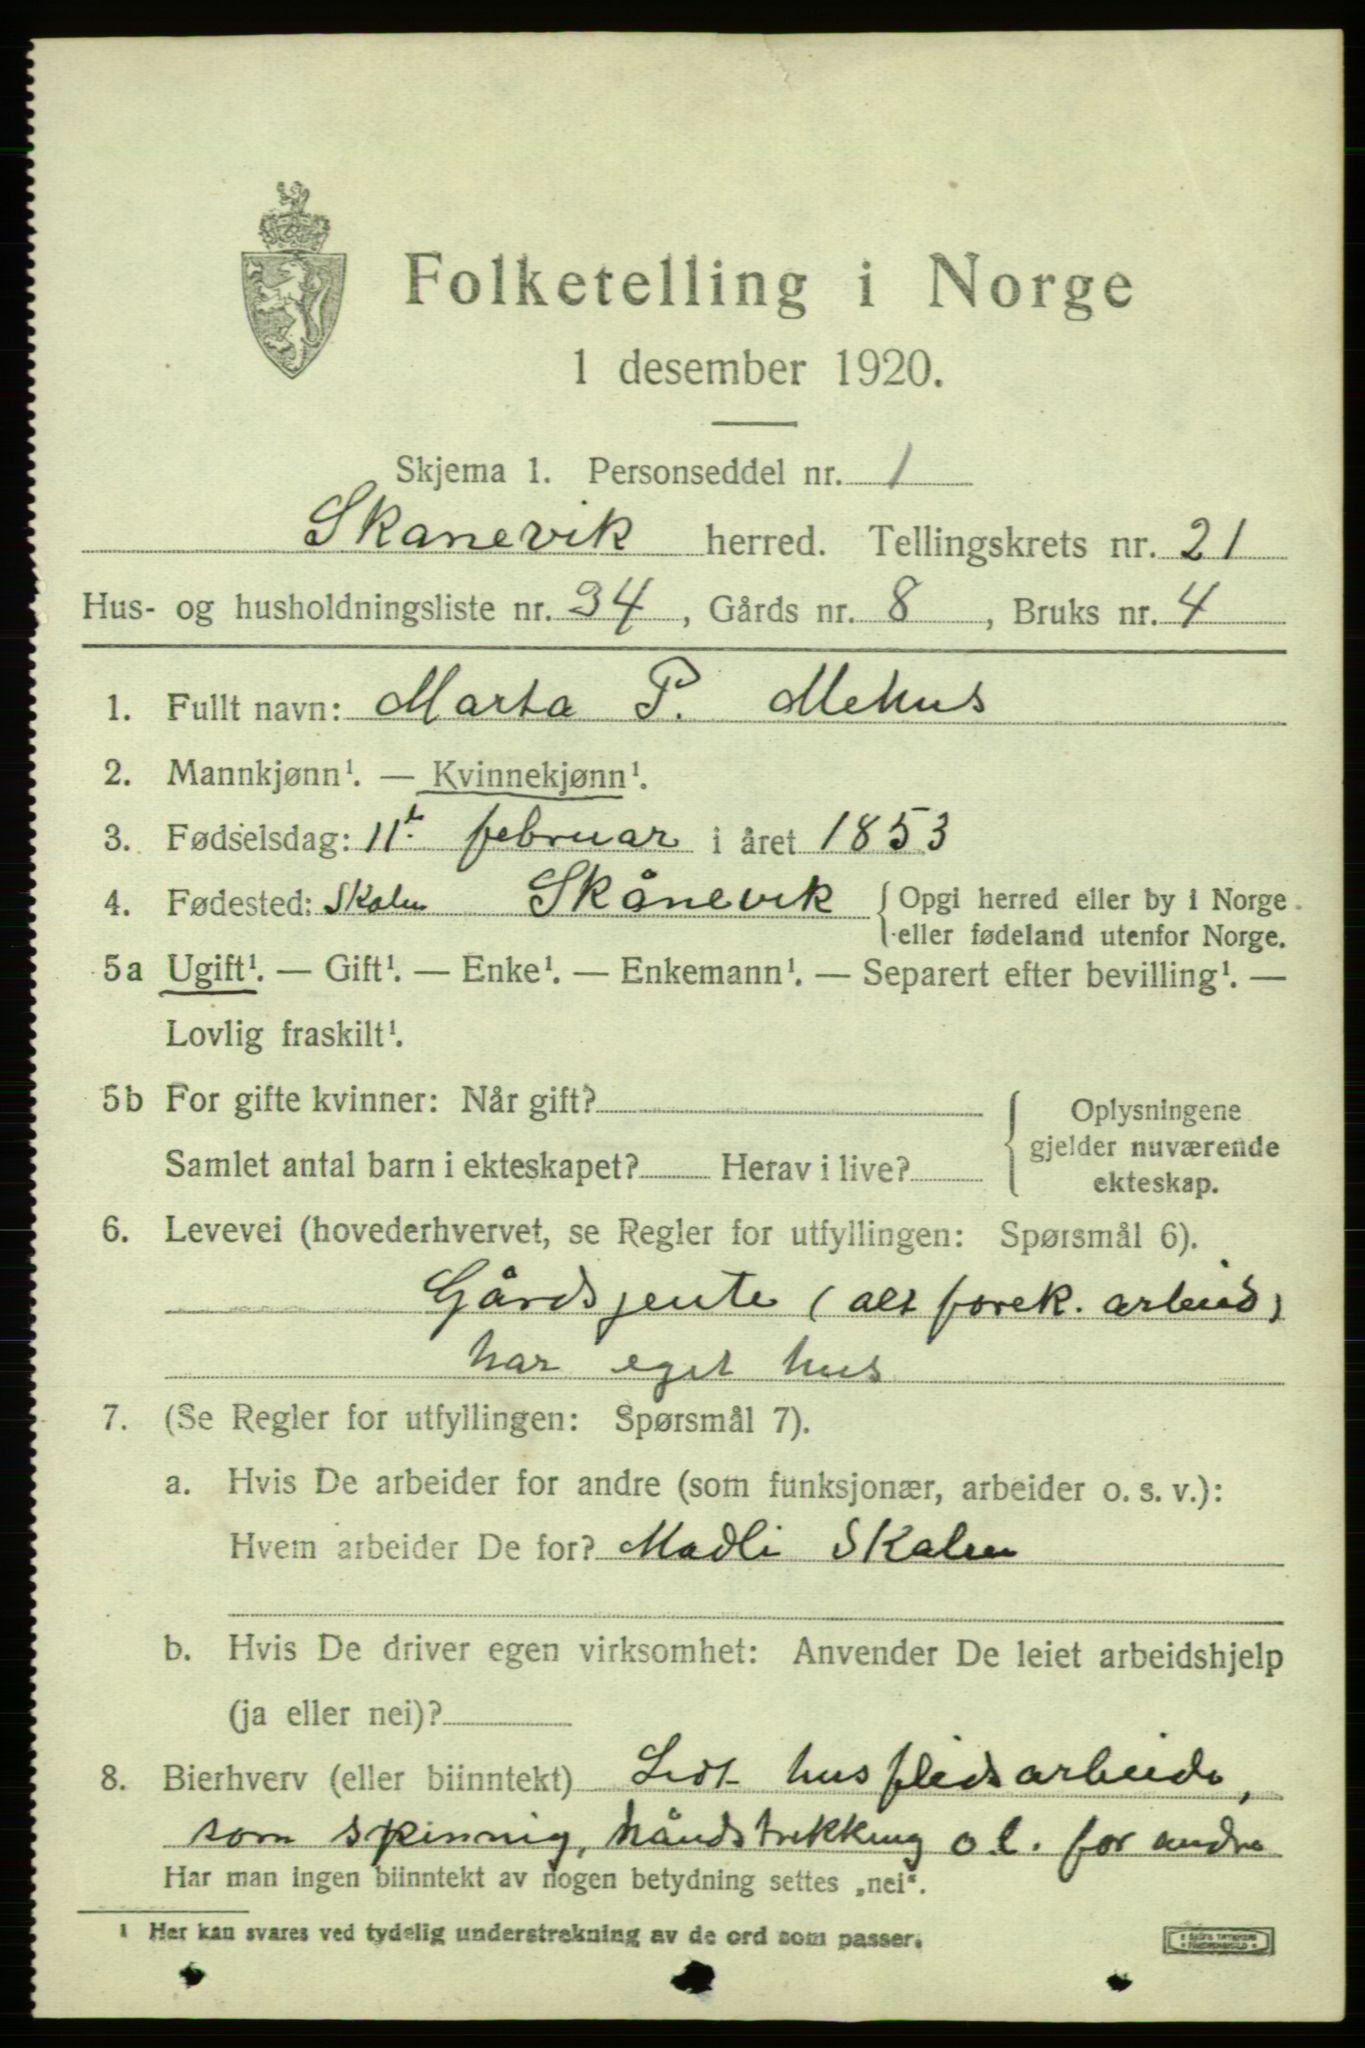 Folketelling i Norge
1 desember 1920.
Skjema 1. Personseddel nr. 1
Skanevik herred. Tellingskrets nr. 21
Hus- og husholdningsliste nr. 34, Gårds nr. 8, Bruks nr. 4
1. Fullt navn: Marta P. Mehus
2. Mannkjønn¹. — Kvinnekjønn¹.
3. Fødselsdag: 11t. februar i året 1853
4. Fødested: Skålnes Skånevik { Opgi herred eller by i Norge
eller fødeland utenfor Norge.
5a Ugift¹. — Gift¹. — Enke¹. — Enkemann¹. — Separert efter bevilling¹. —
Lovlig fraskilt¹.
5b For gifte kvinner: Når gift? { Oplysningene
gjelder nuværende
Samlet antal barn i ekteskapet? Herav i live?
ekteskap.
6. Levevei (hovederhvervet, se Regler for utfyllingen: Spørsmål 6).
Gårdsjente (alt forek. arbeid)
har eget hus
7. (Se Regler for utfyllingen: Spørsmål 7).
a. Hvis De arbeider for andre (som funksjonær, arbeider o. s. v.):
Hvem arbeider De for? Madli
b. Hvis De driver egen virksomhet: Anvender De leiet arbeidshjelp
(ja eller nei)?
8. Bierhverv (eller biinntekt) Lidt husflidsarbeide,
som spinnig, håndstrekking o.l. for andre
Har man ingen biinntekt av nogen betydning settes „nei".
1 Her kan svares ved tydelig understrekning av de ord som passer.